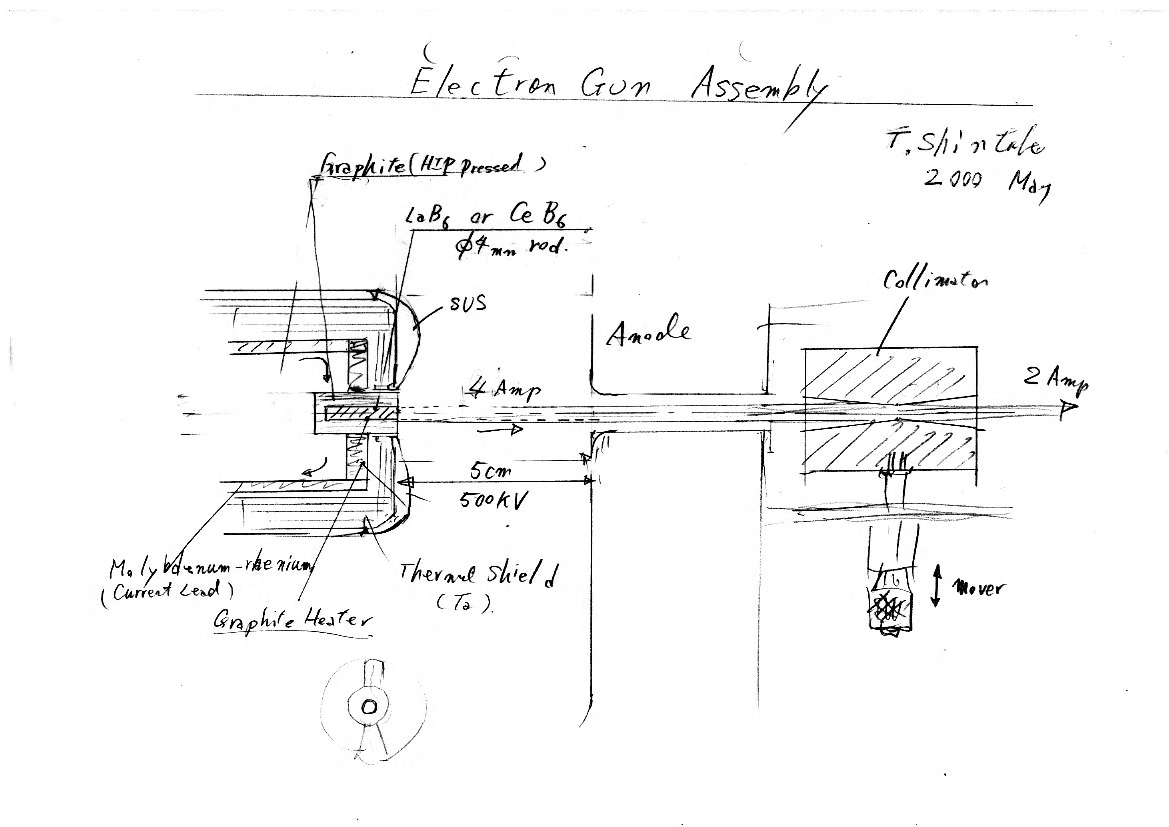 Electron Gun Assembly
T. Shintake
2000 May
Graphite (HIP pressed)
LaB6 or CeB6
φ4mm rod.
SUS
Anode
Collimator
4 Amp
2 Amp
5cm
500KV
Molybdenum-rhenium
(Current Lead)
Graphite Heater
Thermal Shield
(Ta).
mover